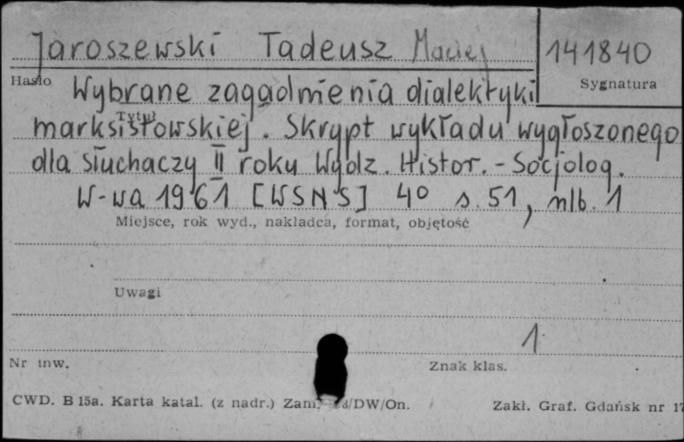 Jaroszewski Tadeusz Maciej 141840
Hasło Sygnatura
Wybrane zagadnienia dialektyki
Tytuł
marksistowskiej. Skrypt wykładu wygłoszonego
dla słuchaczy II roku Wydz. Histor. - Socjolog.
W-wa 1961 [WSNS] 4° s. 51, nlb. 1
Miejsce, rok wyd., nakładca, format, objętość
Uwagi
1
Nr inw. Znak klas.
CWD. B 15a. Karta katal. (z nadr.) Zam. /DW/On. Zakł. Graf. Gdańsk nr 17